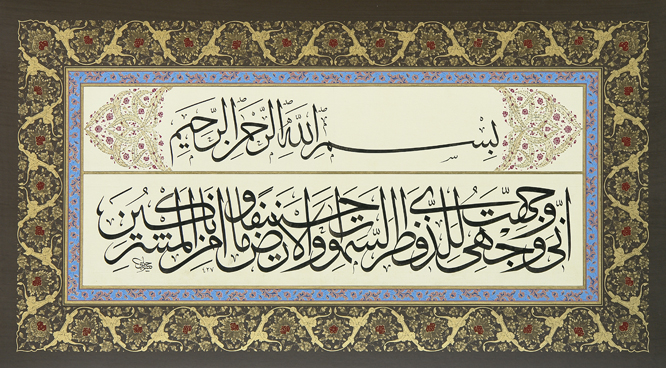 بِسْمِ اللَّهِ الرَّحْمٰنِ الرَّحِيمِ
إِنِّي وَجَّهْتُ وَجْهِيَ لِلَّذِي فَطَرَ السَّمٰوَاتِ وَالْأَرْضَ حَنِيفًا وَمَا أَنَا مِنَ الْمُشْرِكِينَ